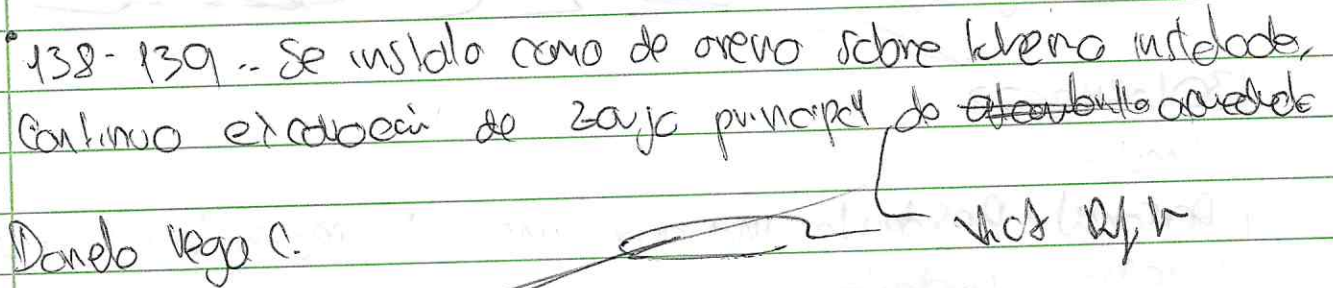 138-139.. Se instalo cama de arena sobre tuberia instalada,
Continuo excavación de zanja principal de acueducto
Danelo Vega C.